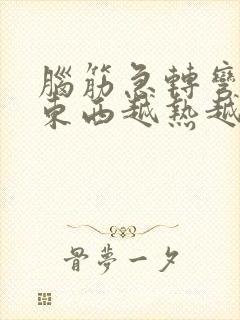 腦筋急轉彎
東西越熱越
骨夢一夕